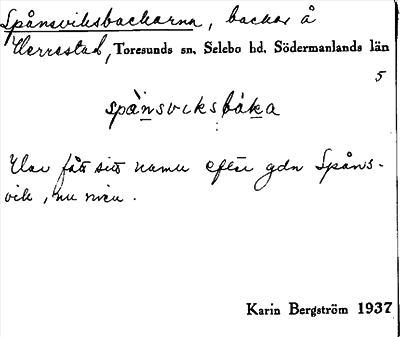 Spånsviksbackarna, backar å
Herrestad, Toresunds sn, Selebo hd, Södermanlands län
5
spånsviksbáka
Har fått sitt namn efter gdn Spåns-
vik, nu riven.
Karin Bergström 1937